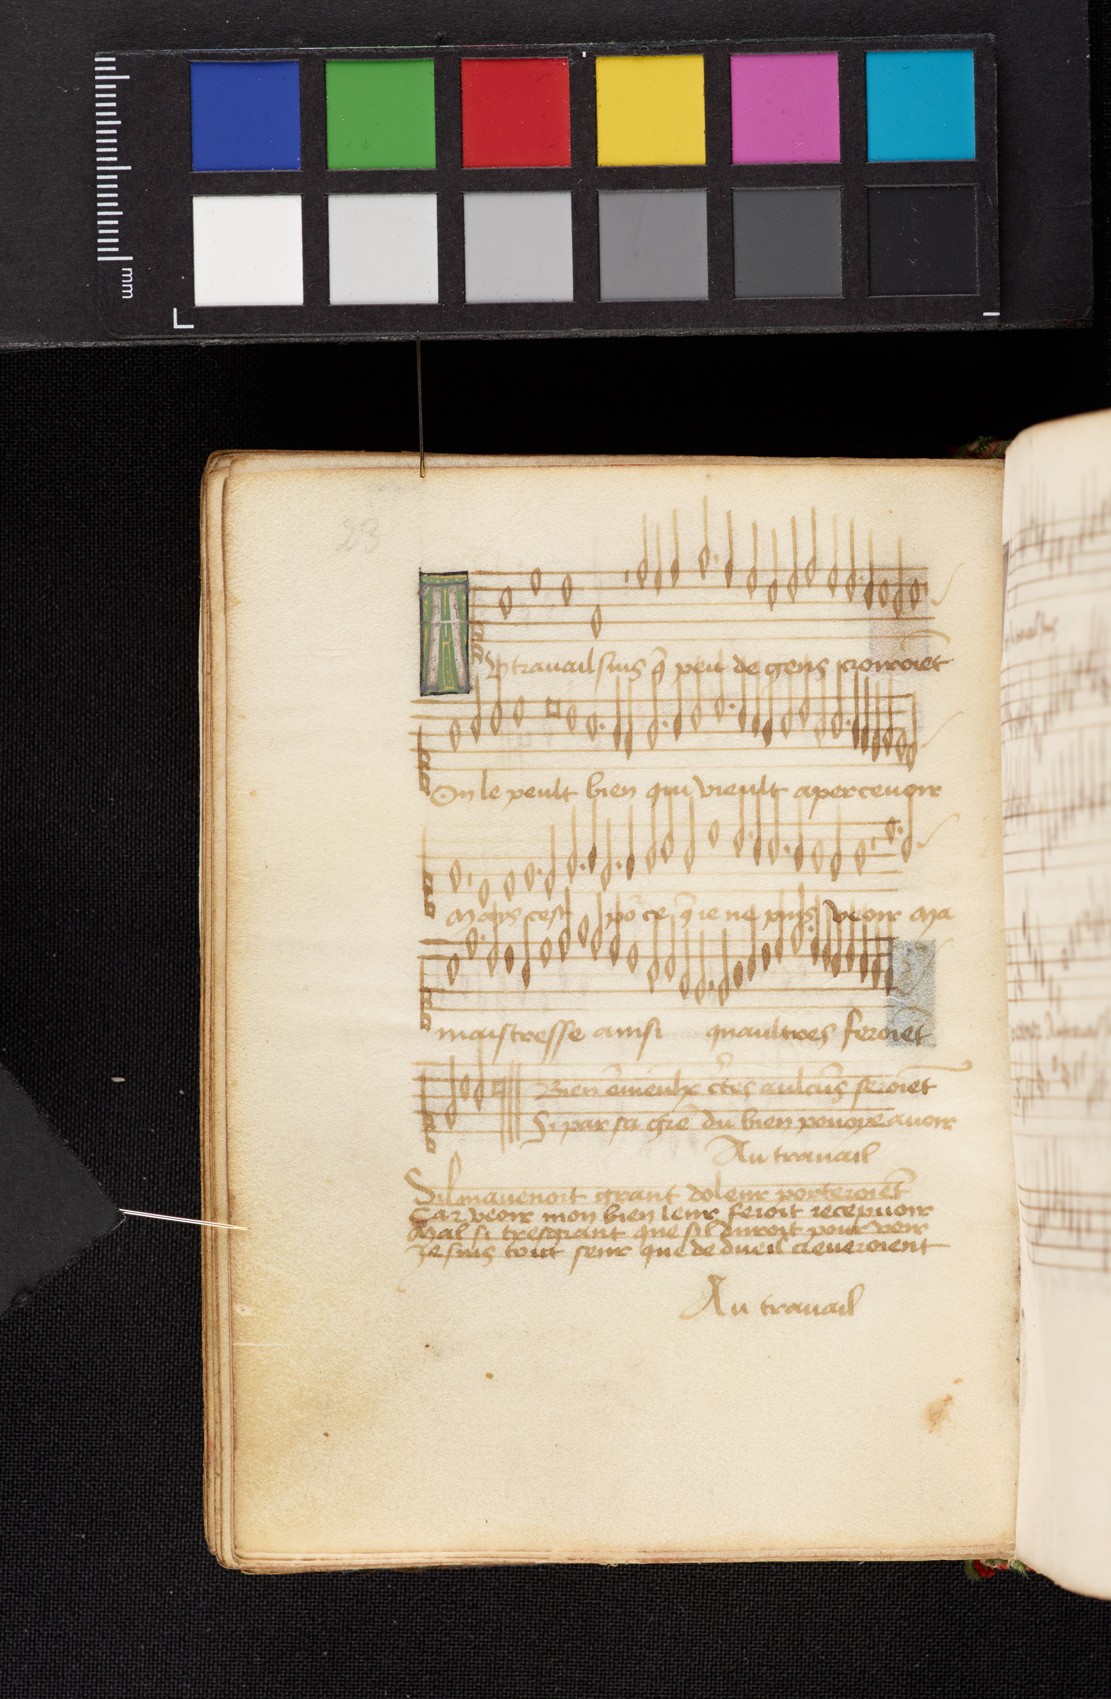 mm
23
Au travail suis q̃ peu de gens croiroiẽt
On le peult bien qui vieult apercevoir
Mays cest po᷑ ce q̃ ie ne puis veoir ma
maistresse ainsi quaultres feroiẽt
Bien aulcũs seroiẽt
Si par sa du bien pouoye avoir
Au travail
Sil mavenoit grant doleur porteroiẽt
Car veoir mon bien leur feroit recepuoir
Mal si tresgrant que sil duroit pour voir
Je suis tout seur que de dueil creveroient
Au travail